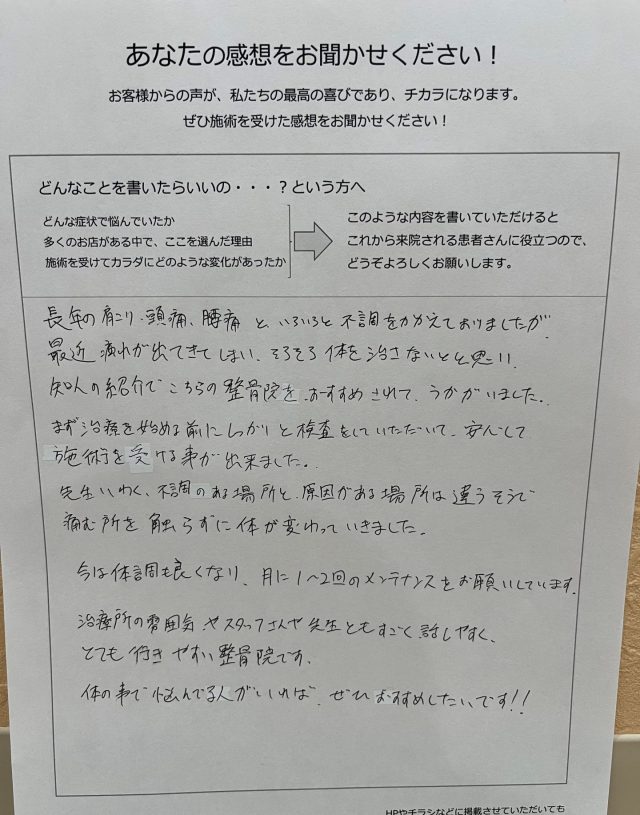 あなたの感想をお聞かせください！
お客様からの声が、私たちの最高の喜びであり、チカラになります。
ぜひ施術を受けた感想をお聞かせください！
どんなことを書いたらいいの・・・？という方へ
どんな症状で悩んでいたか
多くのお店がある中で、ここを選んだ理由
施術を受けてカラダにどのような変化があったか
このような内容を書いていただけると
これから来院される患者さんに役立つので、
どうぞよろしくお願いします。
長年の肩こり・頭痛、腰痛と、いろいろと不調をかかえておりましたが
最近疲れが出てきてしまい、そろそろ体を治さないとと思い、
知人の紹介でこちらの整骨院をおすすめされて、うかがいました。
まず治療を始める前にしっかりと検査をしていただいて、安心して
施術を受ける事が出来ました。
先生いわく、不調のある場所と、原因がある場所は違うそうで
痛む所を触らずに体が変わっていきました。
今は体調も良くなり、月に1〜2回のメンテナンスをお願いしています。
治療所の雰囲気やスタッフさんや先生ともすごく話しやすく、
とても行きやすい整骨院です。
体の事で悩んでる人がいれば、ぜひおすすめしたいです!!
HPやチラシなどに掲載させていただいても